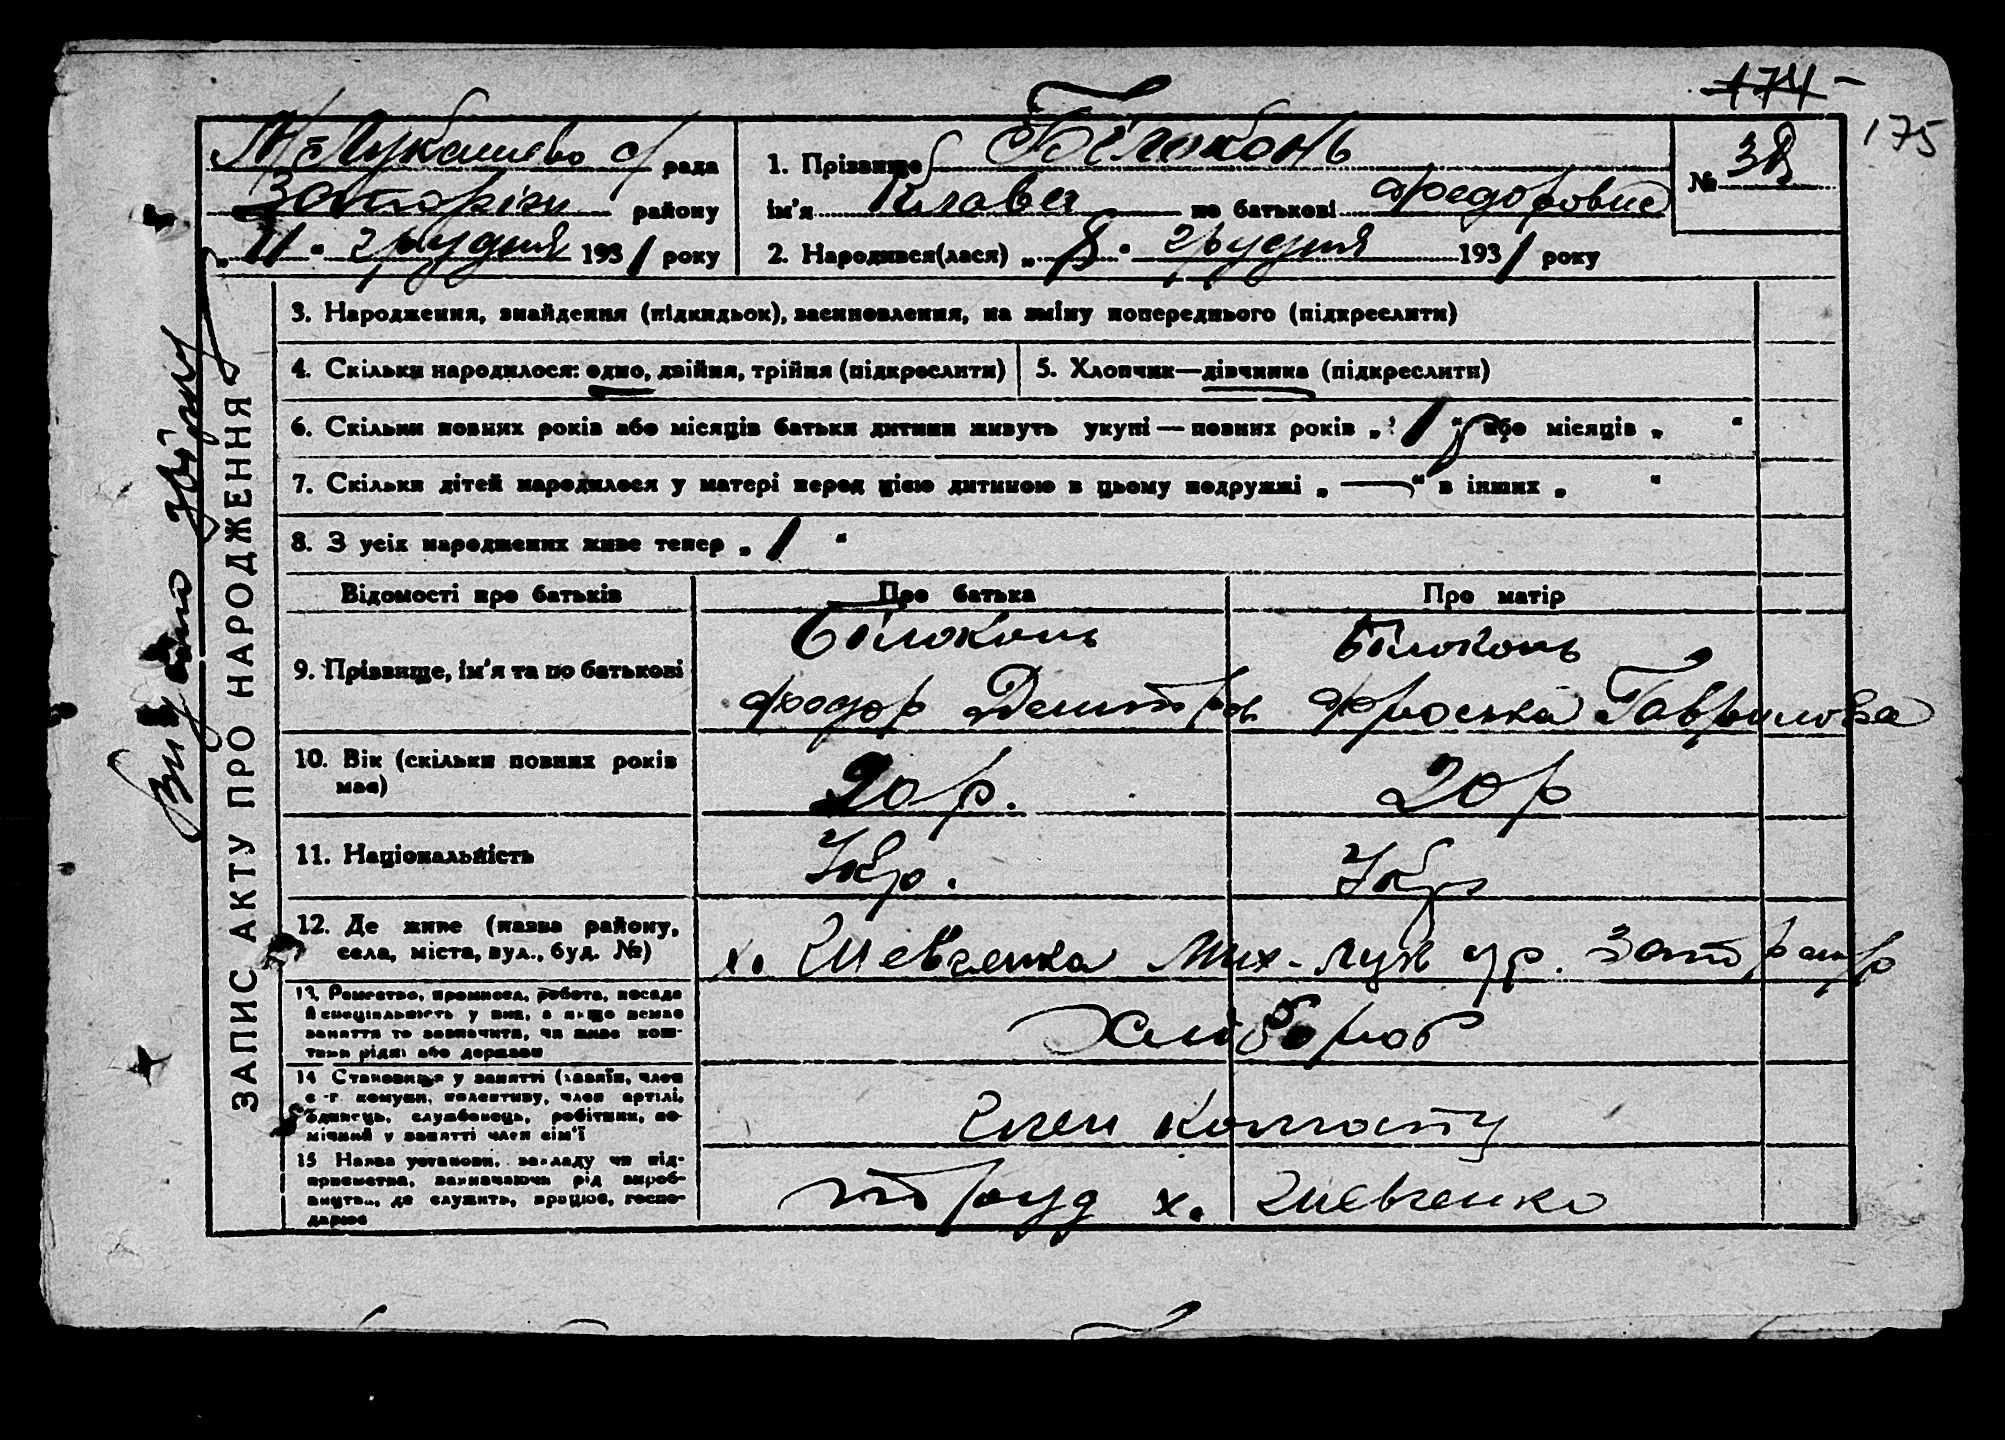 174 -
175
М-Лукашево с/ рада
Запоріжж району
„ 11 “ грудня 1931 року
1. Прізвище Білоконь
ім'я Клава по батькові Федоровна
2. Народився(лася) „ 8 “ грудня 1931 року
№ 38
ЗАПИС АКТУ ПРО НАРОДЖЕННЯ
3. Народження, знайдення (підкидьок), засиновлення, на зміну попереднього (підкреслити)
4. Скільки народилося: одно, двійня, трійня (підкреслити)
5. Хлопчик—дівчинка (підкреслити)
6. Скільки повних років або місяців батьки дитини живуть укупі — повних років „ 1 “ або місяців „ “
7. Скільки дітей народилося у матері перед цією дитиною в цьому подружжі „ — “ в інших „ “
8. З усіх народжених живе тепер „ 1 “
Відомості про батьків Про батька Про матір
9. Прізвище, ім'я та по батькові
Білоконь
Федор Дмитров
Білоконь
Фроська Гаврилова
10. Вік (скільки повних років
має)
20 р.
20 р
11. Національність
Укр.
Укр
12. Де живе (назва району,
села, міста, вул., буд. №)
х. Шевченка Мих-Лук с/р. Запор р
13. Ремество, промисел, робота, посада
й спеціяльність у них, а якщо немає
заняття то зазначити, чи живе кош-
тами рідні або держави
Хлібороб
14 Становище у занятті (хазяїн, член
с.-г комуни, колективу, член артілі,
одинець, службовець, робітник, по-
мічний у занятті член сім'ї
Член колгоспу
15 Назва установи, закладу чи під-
приємства, зазначаючи рід вироб-
ництва, де служить, працює, госпо-
дарює
труд х. Шевченко